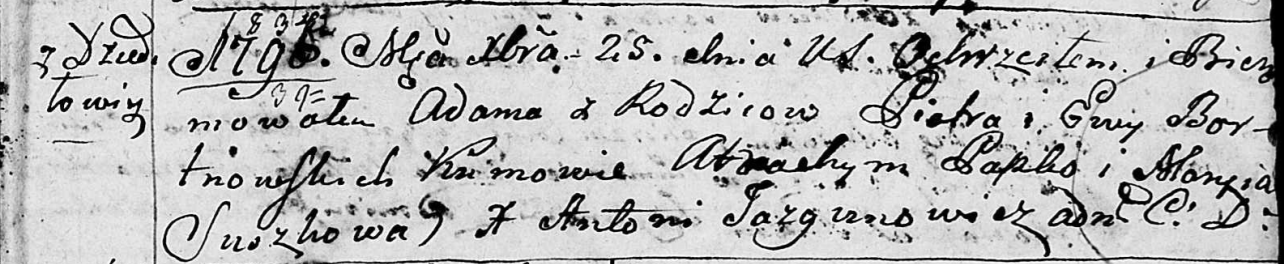 z Dzied.
towiy
1796. Msca Xbra. 25. dnia U S. Ochrzciłem i Bierz
mowałem Adama z Rodzicow Piotra i Ewy Bor-
tnowskich Kumowie Atrachym Papko i Maryia
Suszkowa X Antoni Jazgunowicz adm C. D.